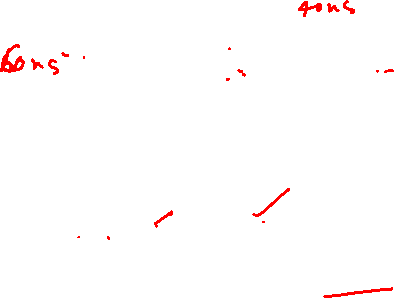 40ns
60ns